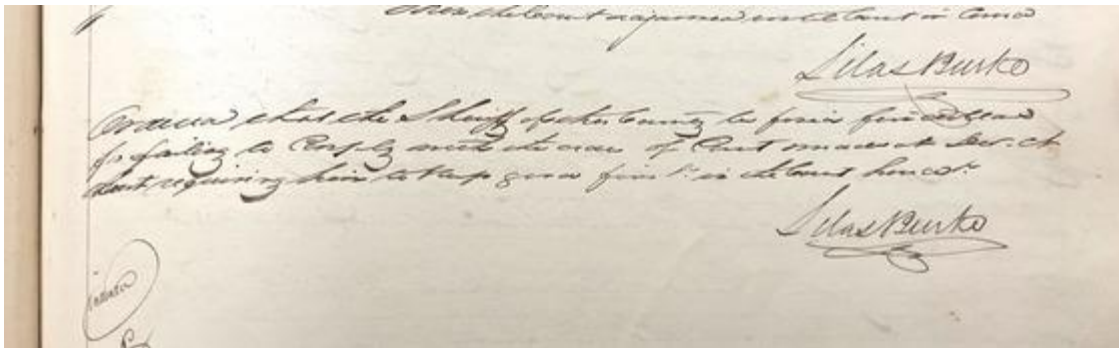 then the Court adjourned until Court in Course
Silas Burke
Ordered that the Sheriff of this County be fined five dollars
for failing to Comply with the order of Court made at Dec. Ct
last requiring him to keep good fires in the Court house.
Silas Burke